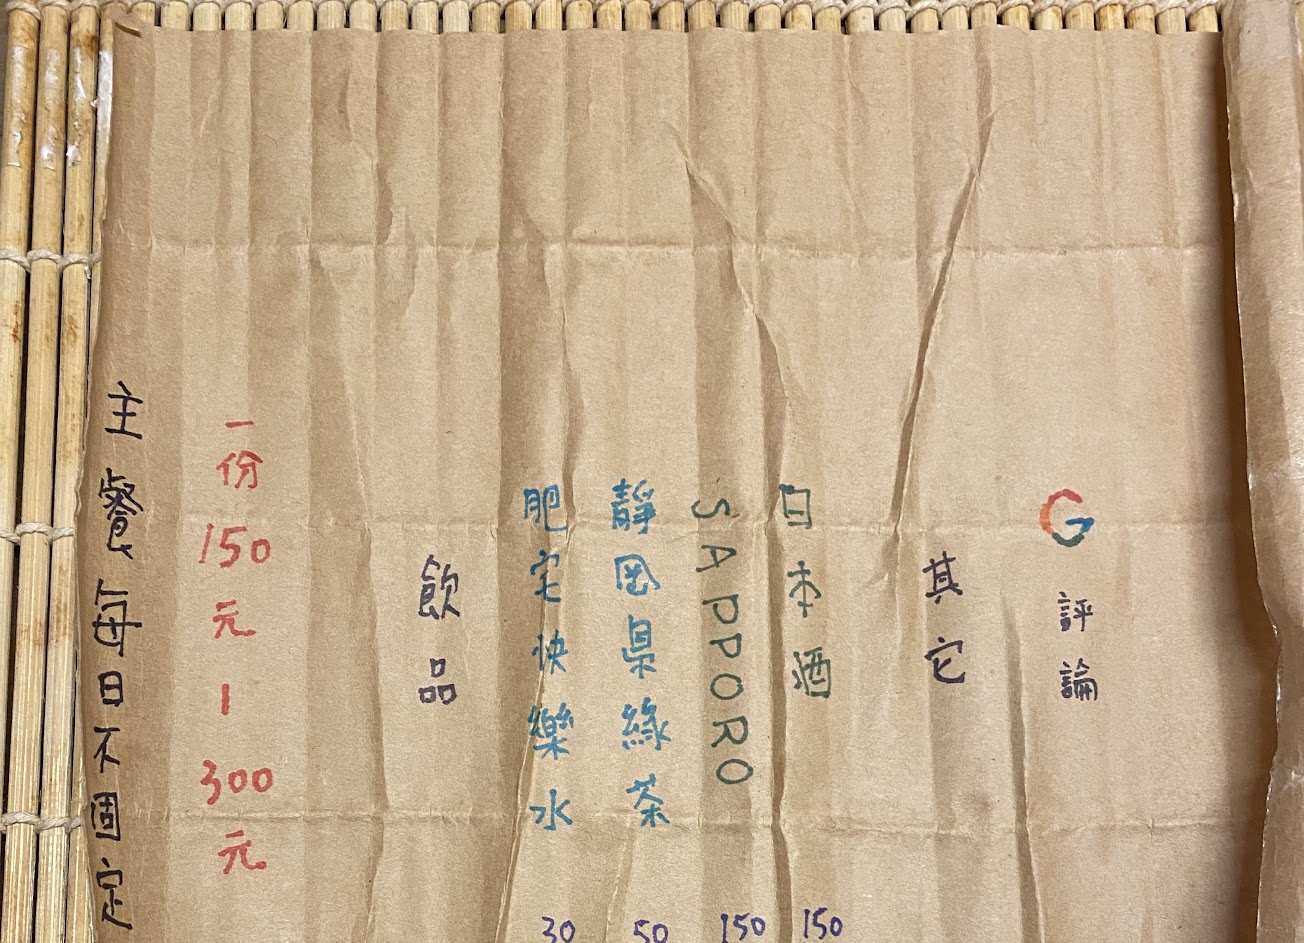 主餐每日不固定
一份150元|300元
飲品
肥宅快樂水 30
靜岡県緣茶 50
SAPPORO 150
日本酒 150
其它
G評論